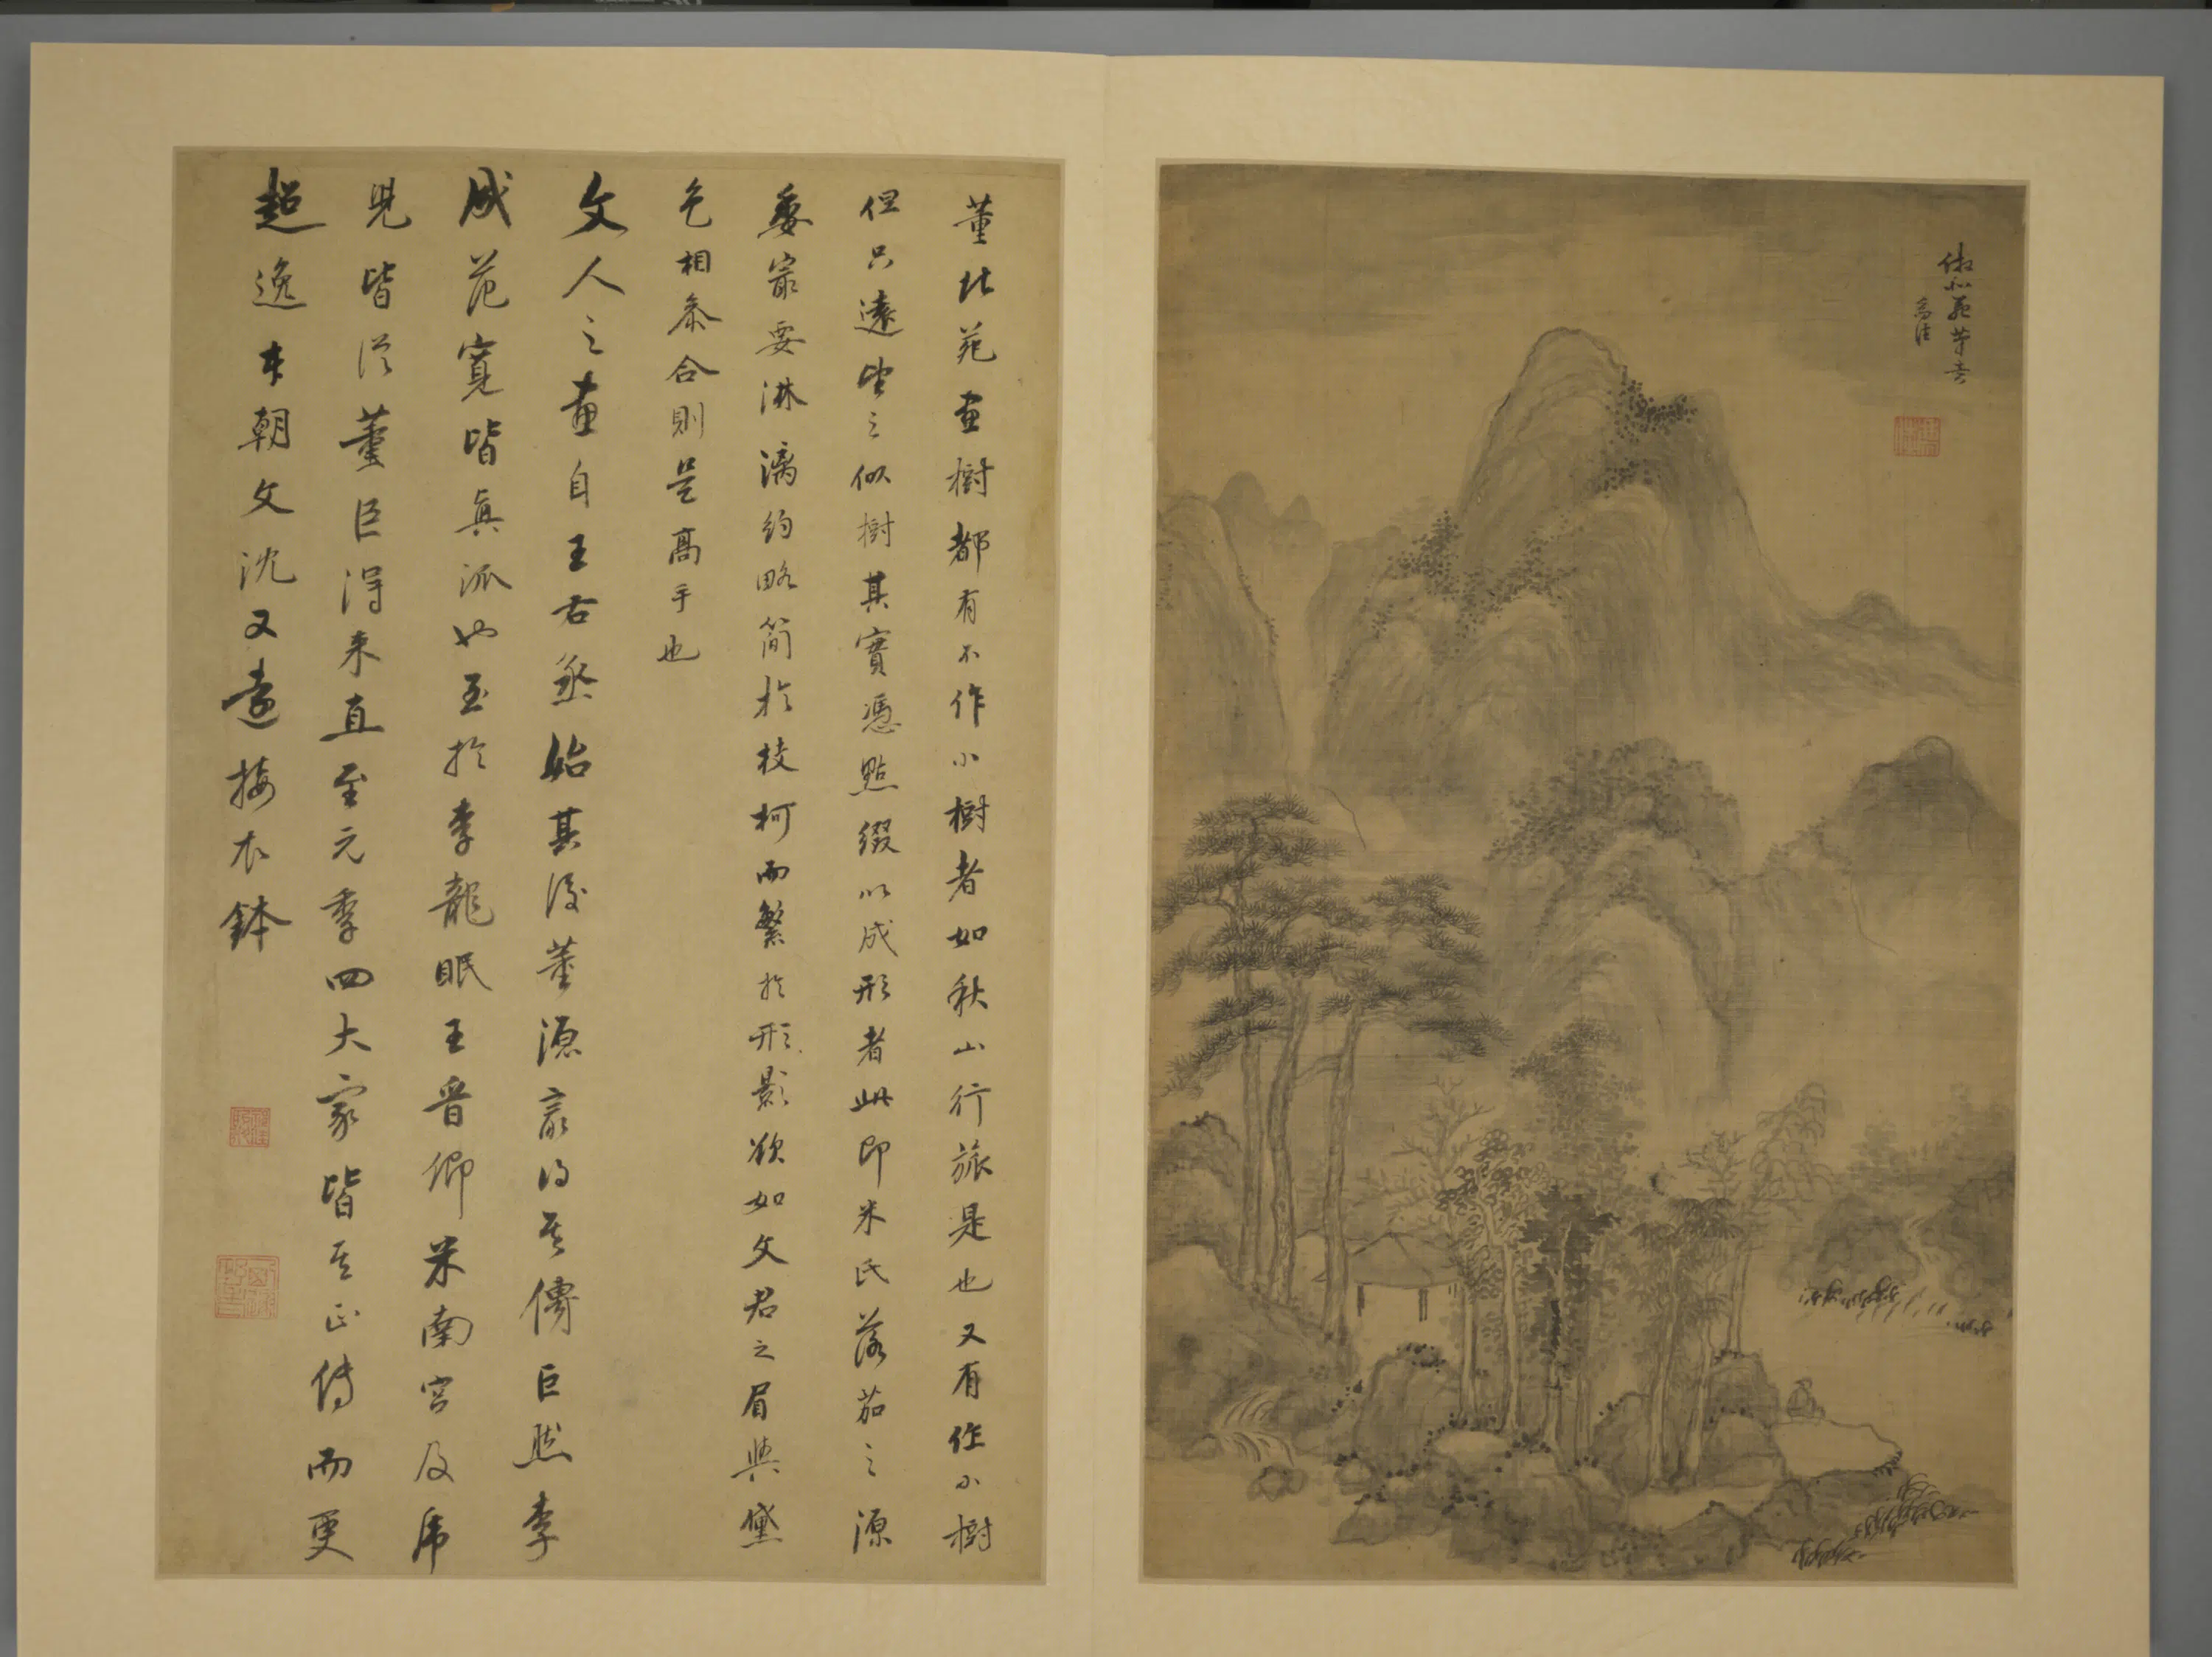 倣北苑筆意
董北苑畫樹都有不作小樹者如秋山行旅是也又有作小樹
但只遠望之似樹其實憑點綴以成形者此即米氏落茄之源
委最要淋漓約略簡於枝柯而繁於形影欲如文君之眉與黛
色相叅合則是高手也
文人之畫自王右丞始其後董源最得其傳巨然李
成范寬皆真派也至於李龍眠王晉卿米南宮及虎
兒皆從董巨得來直至元季四大家皆其正傳而更
超逸本朝文沈又遠接衣鉢